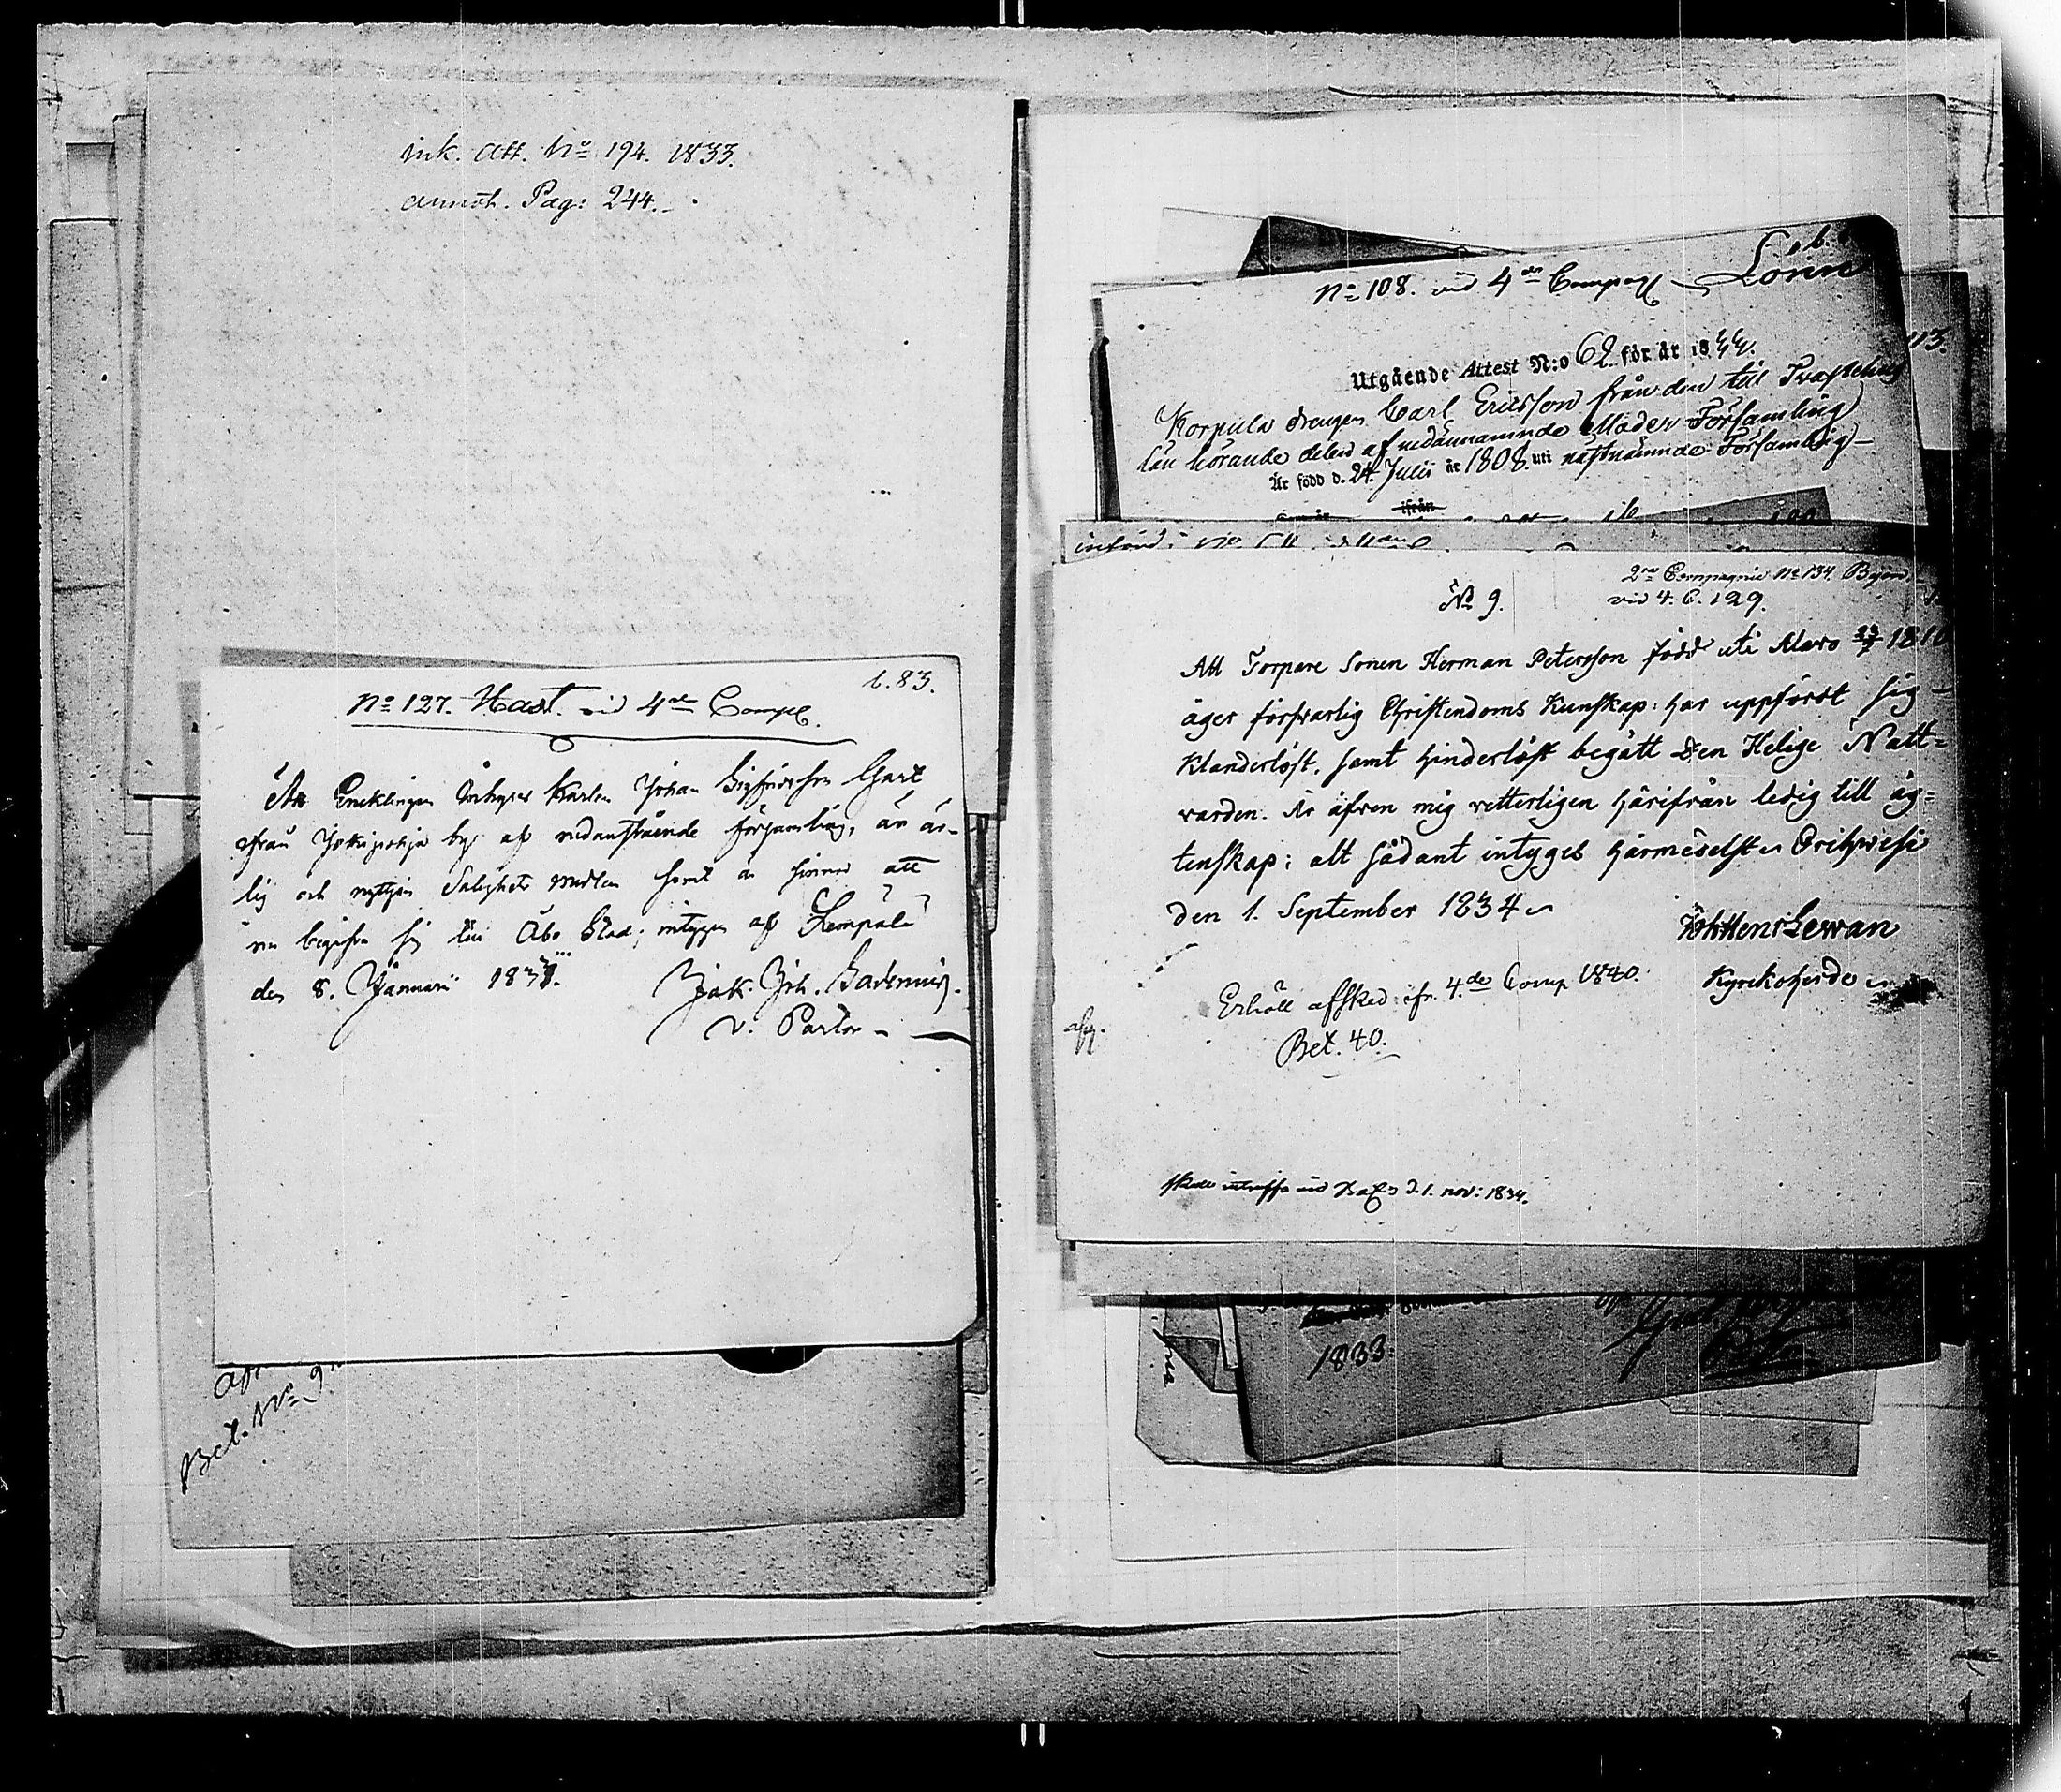 ink. att. No 194. 1833.
annot. Pag: 244.
1.83.
No 127. Hast. vid 4de Comp.
Att Enklingen Inhyses Karlen Johan Sigfridsson
från by af nedanstående församling, är är-
lig och Salighets medlen samt är sinnad att
nu begifva sig till Åbo Stad; intygar af Lempälä
den 8. Januarii 1833.
Jak. Joh.
v. Pastor
Bet. No 9.
No 108. vid 4de Comp Lönn
113.
Utgående Attest N:o 62 för år 1844.
Korpula drengen Carl Ericsson från den till Tavastehus
län hörande delen af nedannämnde Moder Församling
Är född d. 24 Julii år 1808 uti nästnämnde Församling
ifrån
2ra Compagnie No 134. Björn
No 9.
vid 4. C. 129.
Att Torpare Sonen Herman Petersson född uti Alavo 1810
äger försvarlig Christendoms Kunskap: har uppfördt sig
Klanderlöst, samt hinderlöst begått Den Helige Natt=
varden. Är äfven mig vetterligen härifrån ledig till äg=
tenskap; alt sådant intygas härmedelst Orihwesi
den 1. September 1834
Joh Henr Lewan
Kyrkoherde
Erhöll afsked ifr. 4de Comp 1840.
Bet. 40.
afg.
skall intreffa vid d. 1. nov: 1834.
1833.